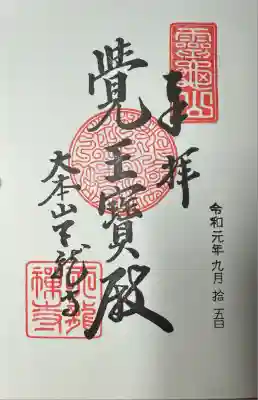 奉拝
令和元年九月拾五日
覺王寶殿
大本山天龍寺
靈龜山
天龍禅寺